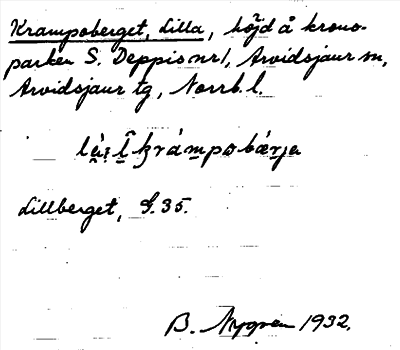 Krampoberget, Lilla, höjd å krono-
parken S. Deppis nr 1, Arvidsjaur sn,
Arvidsjaur tg, Norrb. l.
Lillberget, G. 35.
B. Nygren 1932.